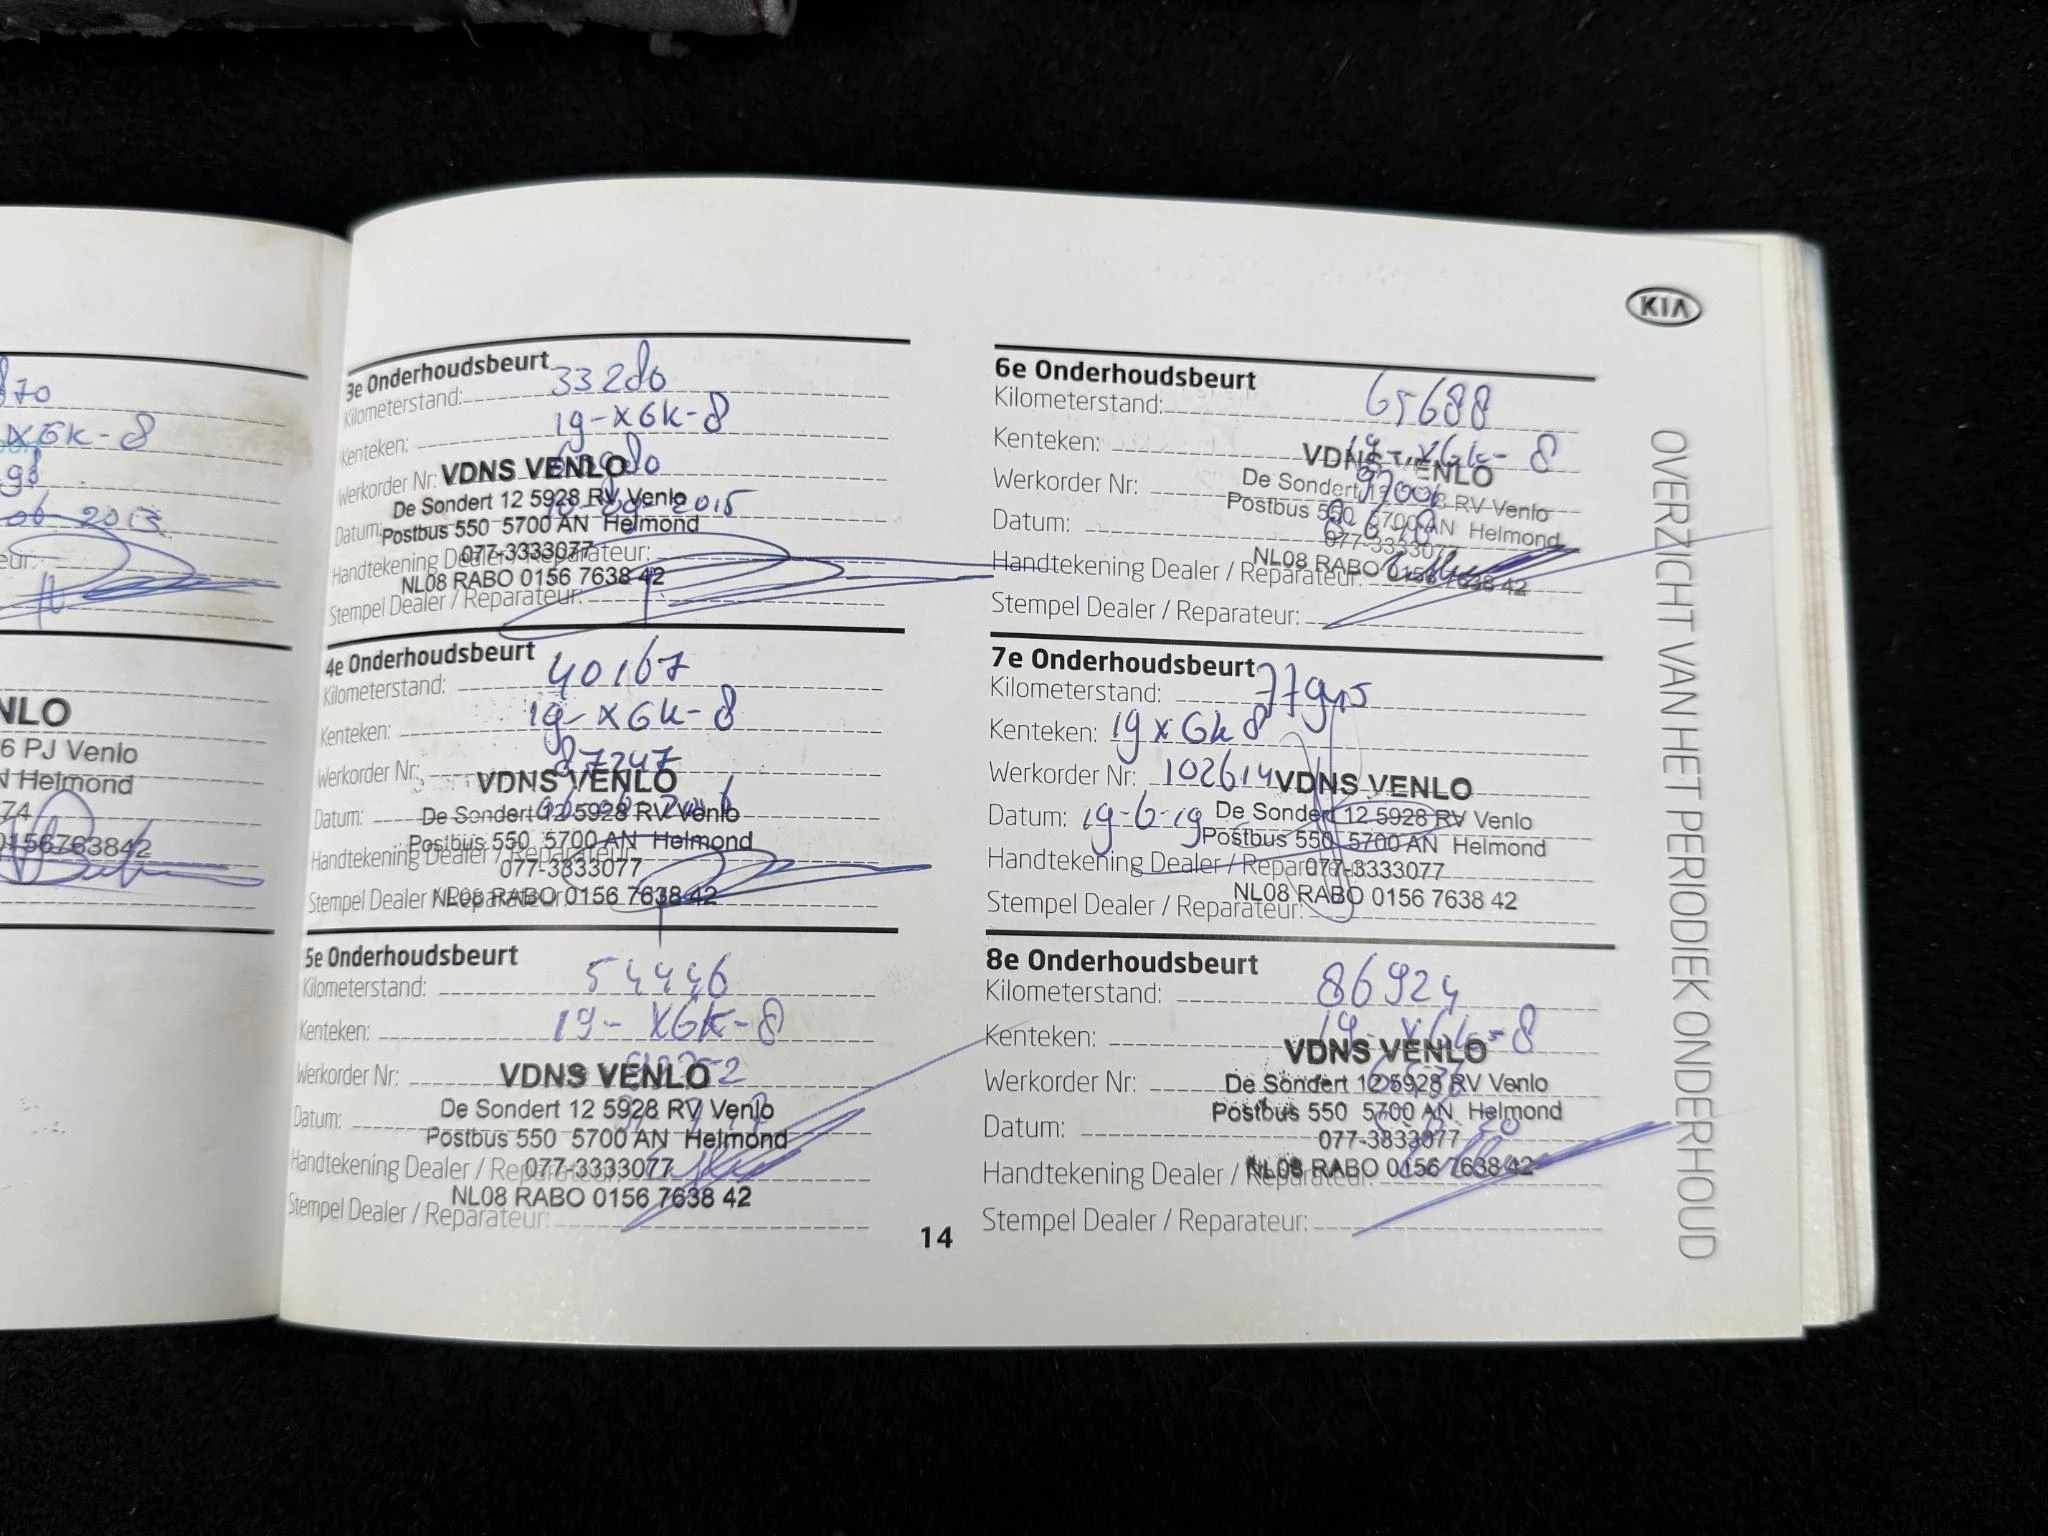 870
XGK-8
98
06 2013
eur:
NLO
6 PJ Venlo
N Helmond
74
0156763842
3e Onderhoudsbeurt
Kilometerstand: 33280
Kenteken: 19-XGK-8
Werkorder Nr:
Datum: 2015
Handtekening Dealer / Reparateur:
Stempel Dealer / Reparateur:
VDNS VENLO
De Sondert 12 5928 RV Venlo
Postbus 550 5700 AN Helmond
077-3333077
NL08 RABO 0156 7638 42
4e Onderhoudsbeurt
Kilometerstand: 40167
Kenteken: 19-XGK-8
Werkorder Nr: 87247
Datum: 2016
Handtekening Dealer / Reparateur:
Stempel Dealer / Reparateur:
VDNS VENLO
De Sondert 12 5928 RV Venlo
Postbus 550 5700 AN Helmond
077-3333077
NL08 RABO 0156 7638 42
5e Onderhoudsbeurt
Kilometerstand: 54446
Kenteken: 19-XGK-8
Werkorder Nr:
Datum:
Handtekening Dealer / Reparateur:
Stempel Dealer / Reparateur:
VDNS VENLO
De Sondert 12 5928 RV Venlo
Postbus 550 5700 AN Helmond
077-3333077
NL08 RABO 0156 7638 42
14
KIA
6e Onderhoudsbeurt
Kilometerstand: 65688
Kenteken: 19-XGK-8
Werkorder Nr:
Datum:
Handtekening Dealer / Reparateur:
Stempel Dealer / Reparateur:
VDNS VENLO
De Sondert 12 5928 RV Venlo
Postbus 550 5700 AN Helmond
077-3333077
NL08 RABO 0156 7638 42
7e Onderhoudsbeurt
Kilometerstand:
Kenteken: 19XGK8
Werkorder Nr: 102614
Datum: 19-6-19
Handtekening Dealer / Reparateur:
Stempel Dealer / Reparateur:
VDNS VENLO
De Sondert 12 5928 RV Venlo
Postbus 550 5700 AN Helmond
077-3333077
NL08 RABO 0156 7638 42
8e Onderhoudsbeurt
Kilometerstand: 86924
Kenteken: 19-XGK-8
Werkorder Nr:
Datum:
Handtekening Dealer / Reparateur:
Stempel Dealer / Reparateur:
VDNS VENLO
De Sondert 12 5928 RV Venlo
Postbus 550 5700 AN Helmond
077-3333077
NL08 RABO 0156 7638 42
OVERZICHT VAN HET PERIODIEK ONDERHOUD